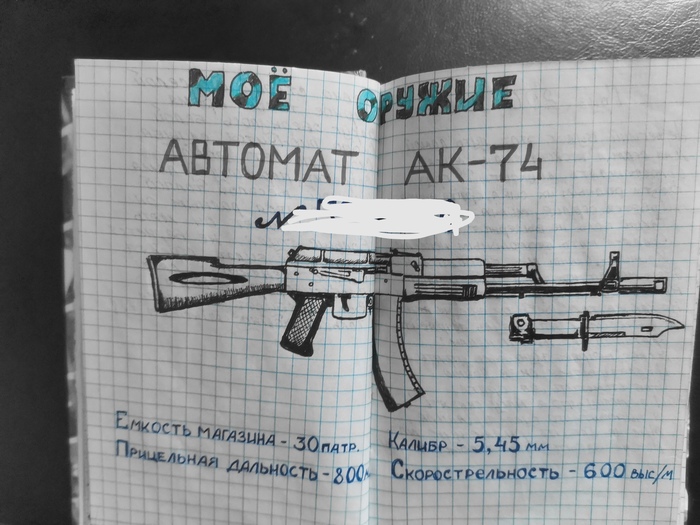 МОЁ ОРУЖИЕ
АВТОМАТ АК-74
№
Емкость магазина - 30 патр.
Прицельная дальность - 800м
Калибр - 5,45 мм
Скорострельность - 600 выс/м